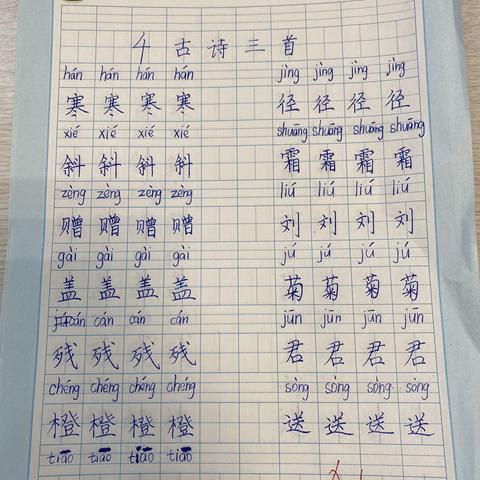 4 古诗三首
hán hán hán hán jìng jìng jìng jìng
寒 寒 寒 寒 径 径 径 径
xié xié xié xié shuāng shuāng shuāng shuāng
斜 斜 斜 斜 霜 霜 霜 霜
zèng zèng zèng zèng liú liú liú liú
赠 赠 赠 赠 刘 刘 刘 刘
gài gài gài gài jú jú jú jú
盖 盖 盖 盖 菊 菊 菊 菊
cán cán cán cán jūn jūn jūn jūn
残 残 残 残 君 君 君 君
chéng chéng chéng chéng sòng sòng sòng sòng
橙 橙 橙 橙 送 送 送 送
tiāo tiāo tiāo tiāo